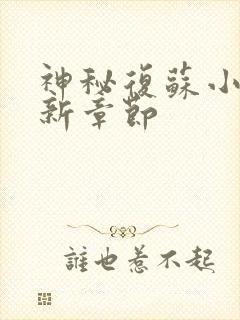 神秘復蘇小
新章節
誰也惹不起